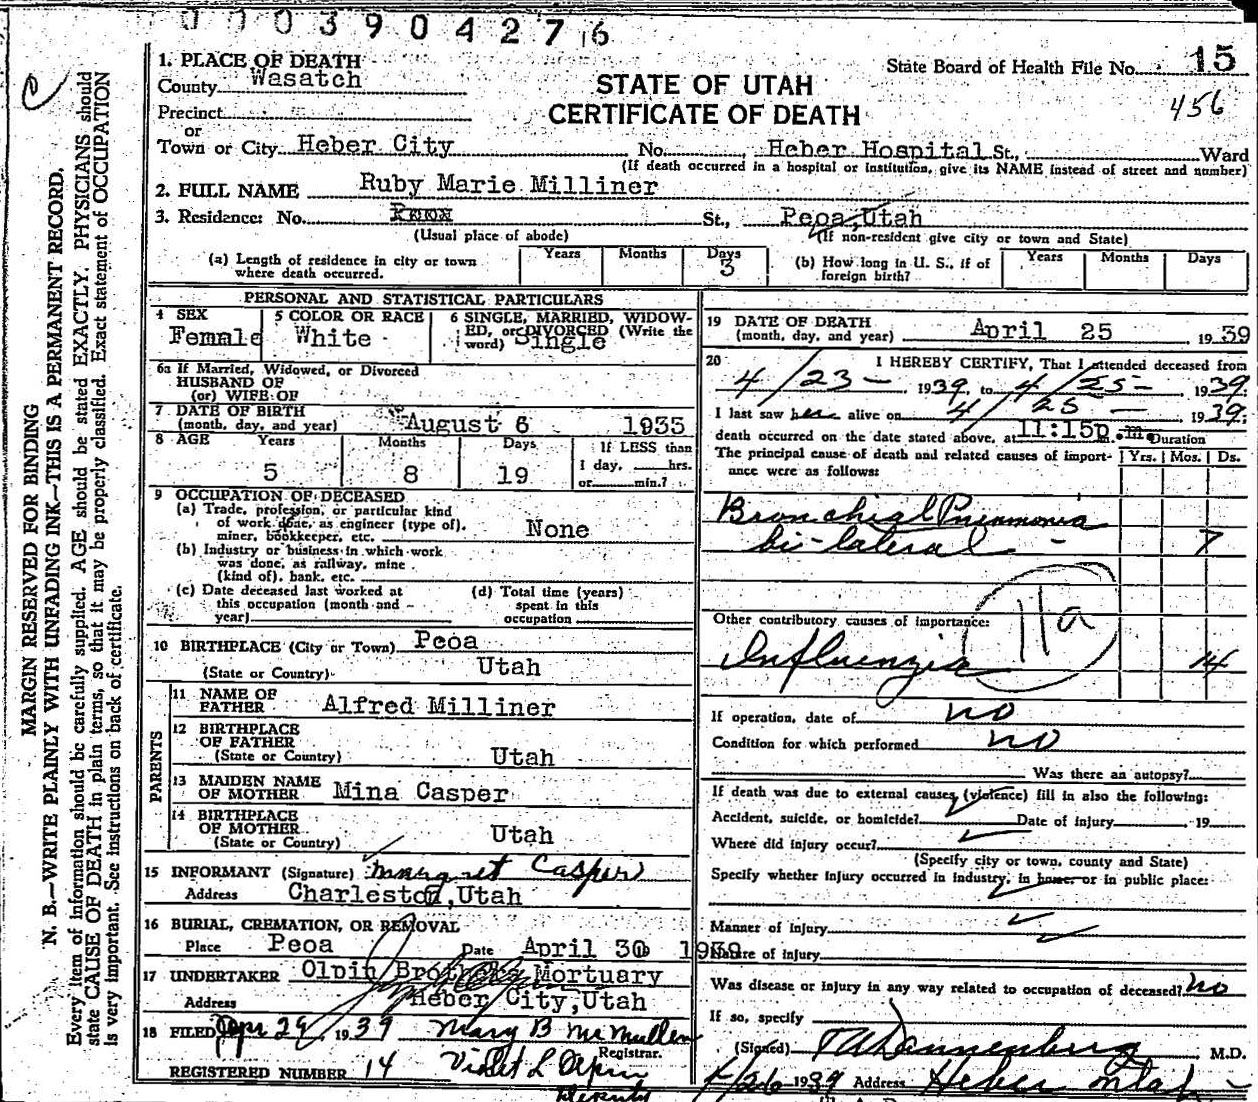 0003904276
15
State Board of Health File No.
456
1. PLACE OF DEATH
County Wasatch
STATE OF UTAH
CERTIFICATE OF DEATH
Precinct
or
Town or City Heber City No. Heber Hospital St., Ward
(If death occurred in a hospital or institution, give its NAME instead of street and number)
2. FULL NAME Ruby Marie Milliner
3. Residence: No. St., Peoa, Utah
(Usual place of abode) (If non-resident give city or town and State)
(a) Length of residence in city or town where death occurred. Years Months Days 3
(b) How long in U. S., if of foreign birth? Years Months Days
PERSONAL AND STATISTICAL PARTICULARS
4 SEX Female
5 COLOR OR RACE White
6 SINGLE, MARRIED, WIDOWED, or DIVORCED (Write the word) Single
6a If Married, Widowed, or Divorced
HUSBAND OF
(or) WIFE OF
7 DATE OF BIRTH
(month, day, and year) August 6 1933
8 AGE Years Months Days If LESS than
5 8 19 1 day, hrs.
or min.?
9 OCCUPATION OF DECEASED
(a) Trade, profession, or particular kind
of work done, as engineer (type of).
miner, bookkeeper, etc. None
(b) Industry or business in which work
was done, as railway, mine
(kind of), bank, etc.
(c) Date deceased last worked at
this occupation (month and
year)
(d) Total time (years)
spent in this
occupation
10 BIRTHPLACE (City or Town) Peoa
(State or Country) Utah
PARENTS
11 NAME OF
FATHER Alfred Milliner
12 BIRTHPLACE
OF FATHER
(State or Country) Utah
13 MAIDEN NAME
OF MOTHER Mina Casper
14 BIRTHPLACE
OF MOTHER
(State or Country) Utah
15 INFORMANT (Signature) Margret Casper
Address Charleston, Utah
16 BURIAL, CREMATION, OR REMOVAL
Place Peoa Date April 30 1939
17 UNDERTAKER Olpin Brothers Mortuary
Address Heber City, Utah
18 FILED Apr 29, 1939 Mary B McMullen
Registrar.
REGISTERED NUMBER 14 Violet L Olpin
Deputy
19 DATE OF DEATH
(month, day, and year) April 25 1939
20 I HEREBY CERTIFY, That I attended deceased from
4/23- 1939, to 4/25- 1939.
I last saw her alive on 4/25 - 1939.
death occurred on the date stated above, at 11:15p m. Duration
The principal cause of death and related causes of importance were as follows: Yrs. Mos. Ds.
Bronchial Pneumonia
bi-lateral - 7
11a
Other contributory causes of importance:
Influenzia 14
If operation, date of no
Condition for which performed no
Was there an autopsy?
If death was due to external causes (violence) fill in also the following:
Accident, suicide, or homicide? Date of injury 19
Where did injury occur?
(Specify city or town, county and State)
Specify whether injury occurred in industry, in home, or in public place:
Manner of injury
Nature of injury
Was disease or injury in any way related to occupation of deceased? no
If so, specify
(Signed) Dannenberg M.D.
4/26 1939 Address Heber Utah
MARGIN RESERVED FOR BINDING
N. B.—WRITE PLAINLY WITH UNFADING INK—THIS IS A PERMANENT RECORD.
Every item of information should be carefully supplied. AGE should be stated EXACTLY. PHYSICIANS should
state CAUSE OF DEATH in plain terms, so that it may be properly classified. Exact statement of OCCUPATION
is very important. See instructions on back of certificate.